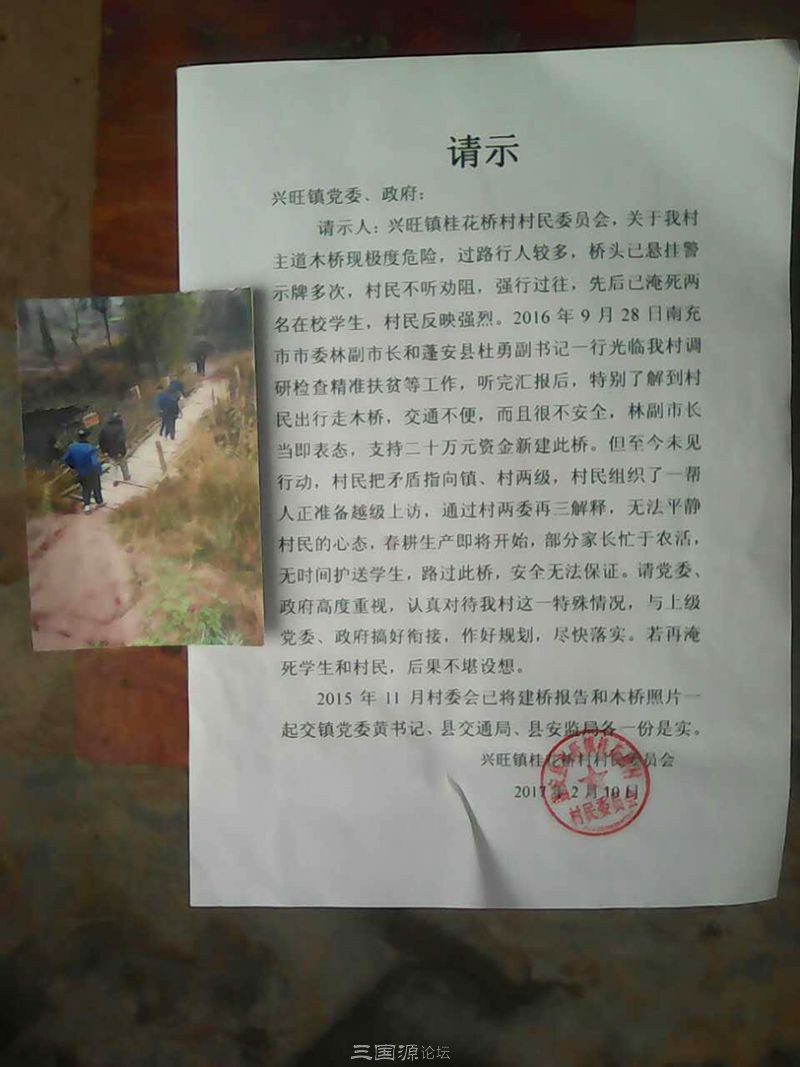 请示
兴旺镇党委、政府：
请示人：兴旺镇桂花桥村村民委员会，关于我村
主道木桥现极度危险，过路行人较多，桥头已悬挂警
示牌多次，村民不听劝阻，强行过往，先后已淹死两
名在校学生，村民反映强烈。2016 年 9 月 28 日南充
市市委林副市长和蓬安县杜勇副书记一行光临我村调
研检查精准扶贫等工作，听完汇报后，特别了解到村
民出行走木桥，交通不便，而且很不安全，林副市长
当即表态，支持二十万元资金新建此桥。但至今未见
行动，村民把矛盾指向镇、村两级，村民组织了一帮
人正准备越级上访，通过村两委再三解释，无法平静
村民的心态，春耕生产即将开始，部分家长忙于农活，
无时间护送学生，路过此桥，安全无法保证。请党委、
政府高度重视，认真对待我村这一特殊情况，与上级
党委、政府搞好衔接，作好规划，尽快落实。若再淹
死学生和村民，后果不堪设想。
2015 年 11 月村委会已将建桥报告和木桥照片一
起交镇党委黄书记、县交通局、县安监局各一份是实。
兴旺镇桂花桥村村民委员会
2017 年 2 月 10 日
村民委员会
三国源论坛